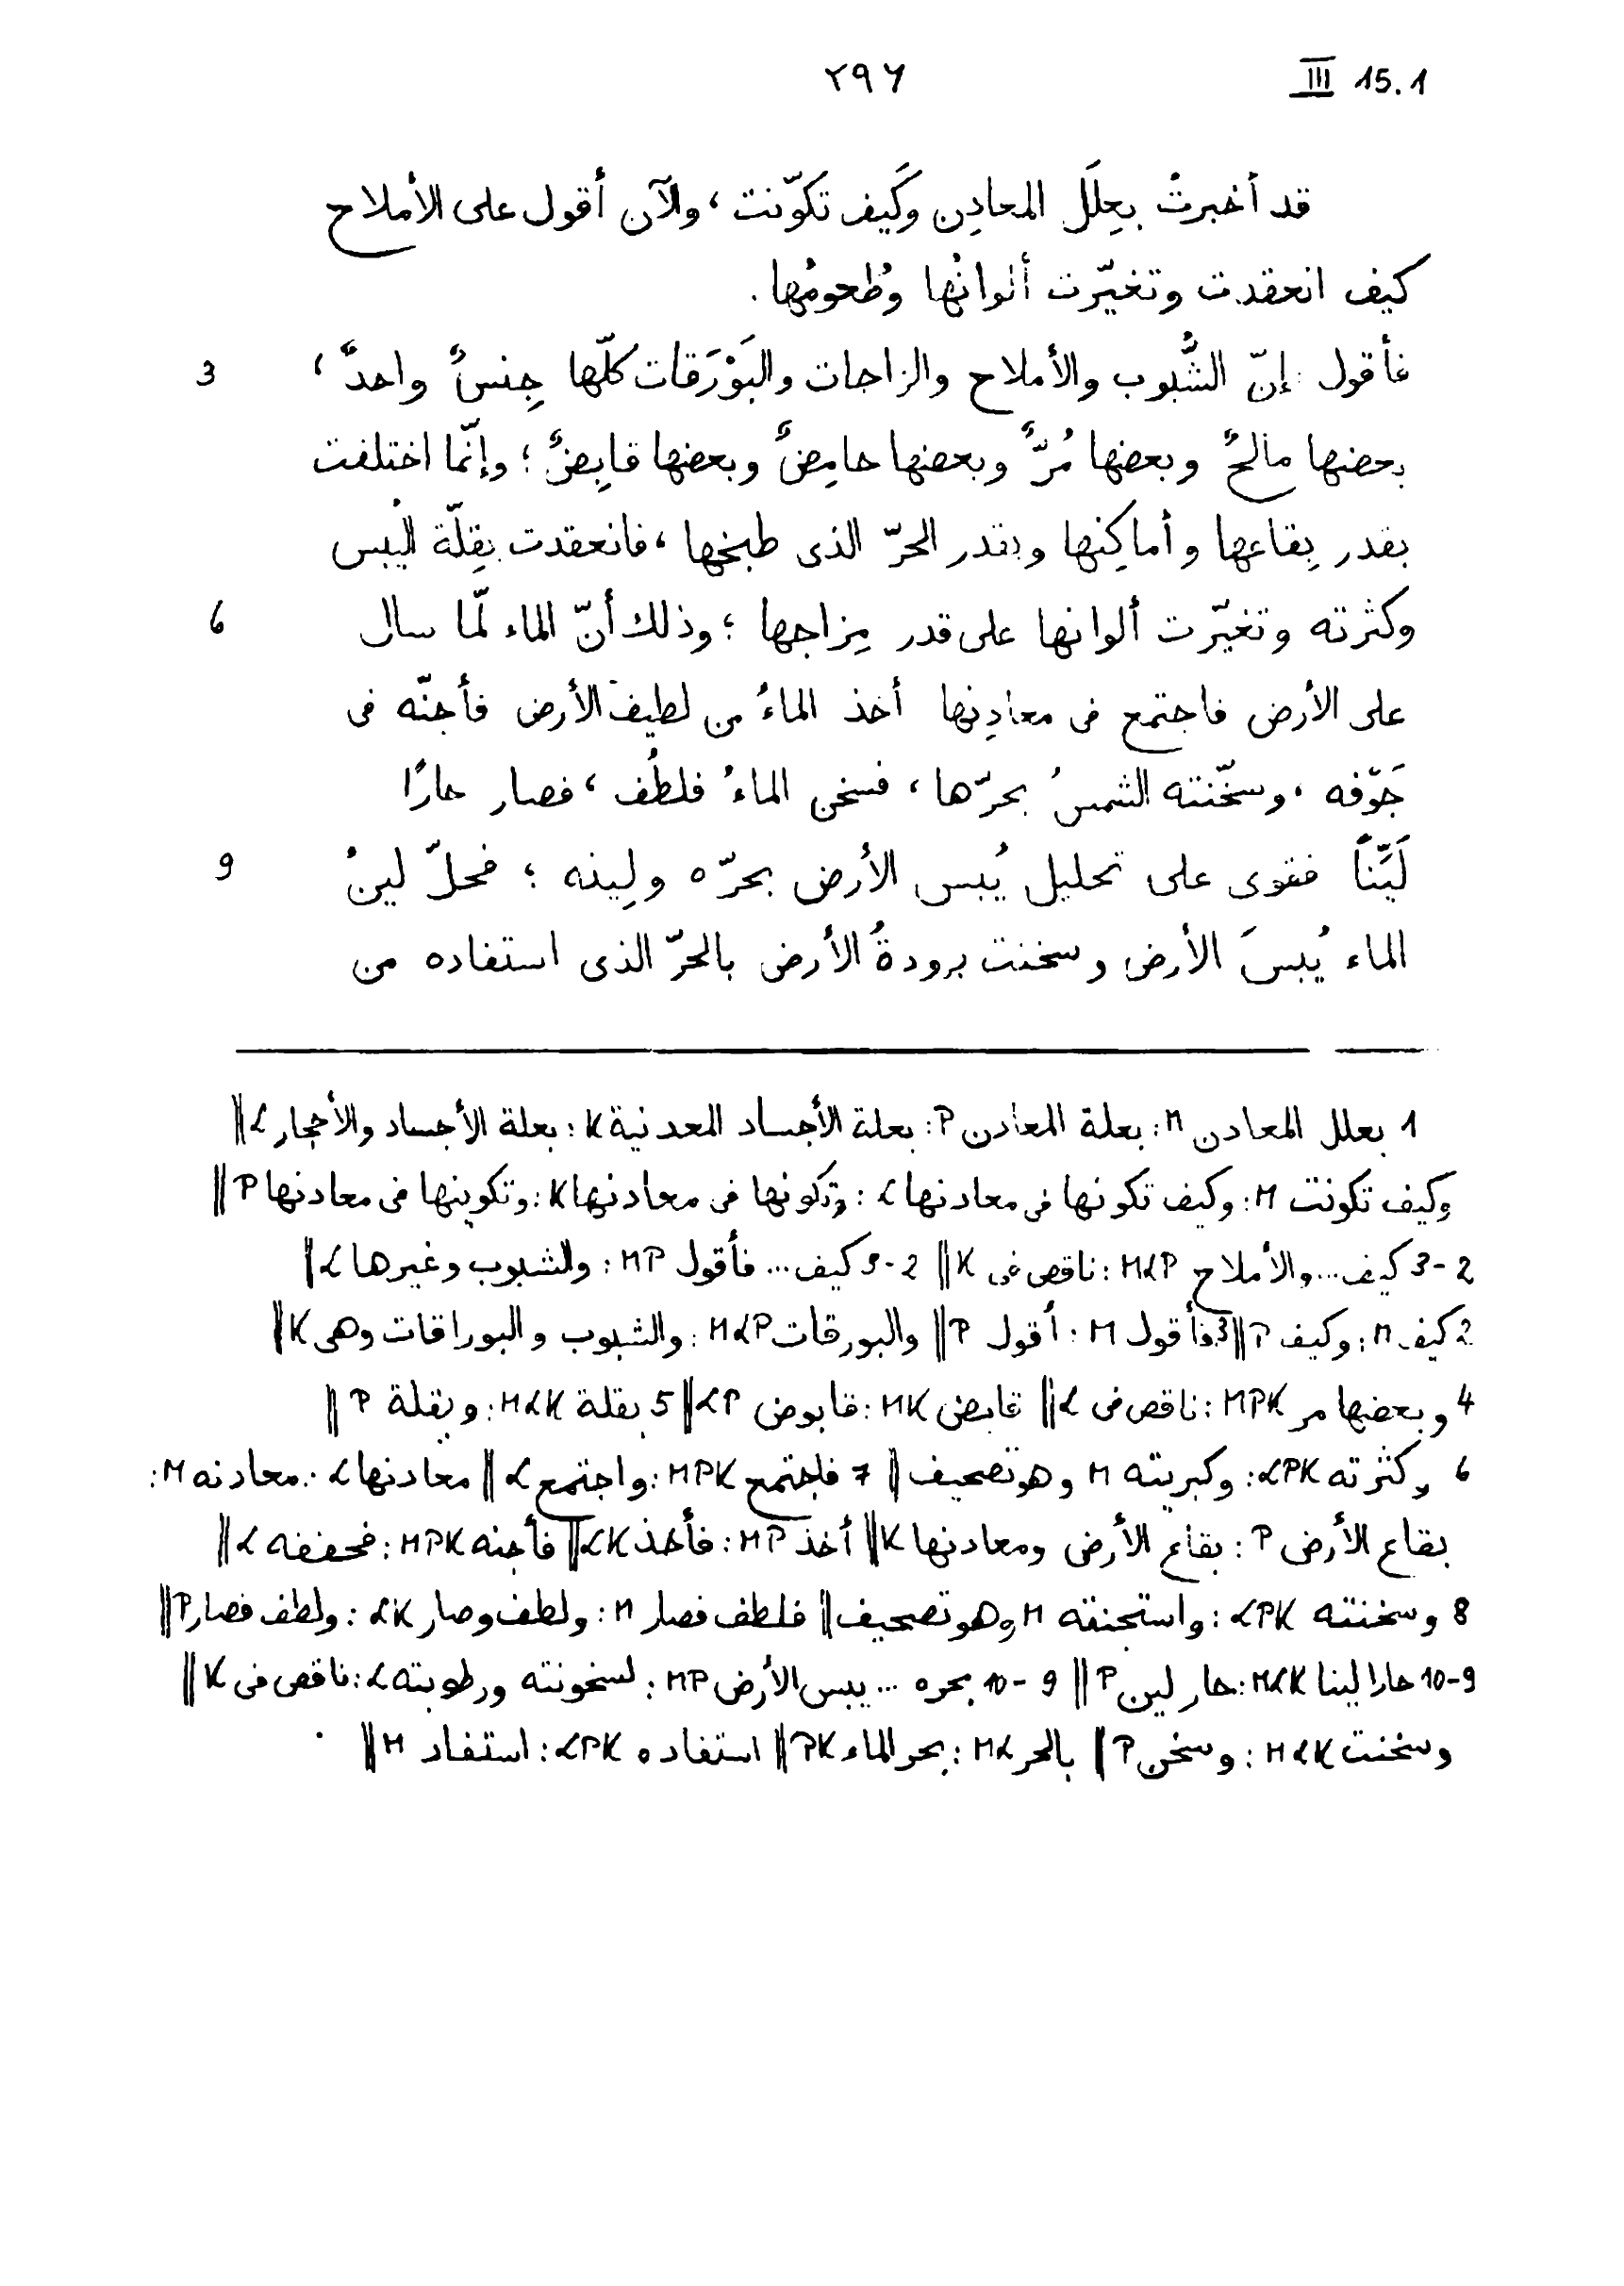 ٢٩٦ III 15.1
قد أخبرتُ بعِلَل المعادِن وكَيف تكوّنت، والآن أقول على الأملاح
كيف انعقدت وتغيّرت ألوانُها وطُعومُها.
3 فأقول: إنّ الشُّبوب والأملاح والزاجات والبَوْرَقات كلّها جِنسٌ واحدٌ،
بعضها مالحٌ وبعضها مُرٌّ وبعضها حامِضٌ وبعضها قابِضٌ؛ وإنّما اختلفت
بقدر بِقاعها وأماكِنها وبقدر الحرّ الذى طبخها، فانعقدت بقِلّة اليُبس
6 وكثرته وتغيّرت ألوانها على قدر مِزاجها؛ وذلك أنّ الماء لمّا سال
على الأرض فاجتمع فى معادِنها أخذ الماءُ من لطيف الأرض فأجنّه فى
جَوّفه، وسخّنته الشمسُ بحرّها، فسخن الماءُ فلطُف، فصار حارًا
9 لَيّنًا فقوى على تحليل يُبس الأرض بحرّه ولِينه؛ فحلّ لينُ
الماء يُبسَ الأرض وسخنت برودةُ الأرض بالحرّ الذى استفاده من
1 بعلل المعادن M: بعلة المعادن P: بعلة الأجساد المعدنية K: بعلة الأجساد والأحجار L ||
وكيف تكونت M: وكيف تكونها فى معادنها L: وتكونها فى معادنها K: وتكوينها فى معادنها P ||
2-3 كيف... والأملاح MLP: ناقص فى K || 2-3 كيف... فأقول MP: والشبوب وغيرها L ||
2 كيف M: وكيف P || 3 فأقول M: أقول P || والبورقات MLP: والشبوب والبوراقات وهى K ||
4 وبعضها مر MPK: ناقص فى L || قابض MK: قابوض LP || 5 بقلة MLK: وبقلة P ||
6 وكثرته LPK: وكبريته M وهو تصحيف || 7 فاجتمع MPK: واجتمع L || معادنها L: معادنه M:
بقاع الأرض P: بقاع الأرض ومعادنها K || أخذ MP: فأخذ LK || فأجنه MPK: فحففه L ||
8 وسخنته LPK: واستجنقه M وهو تصحيف || فلطف فصار M: ولطف وصار LK: ولطف فصار P ||
9-10 حارا لينا MLK: حار لين P || 9-10 بحره ... يبس الأرض MP: لسخونته ورطوبته L: ناقص فى K ||
وسخنت MLK: وسخن P || بالحر ML: بحر الماء PK || استفاده LPK: استفاد M ||